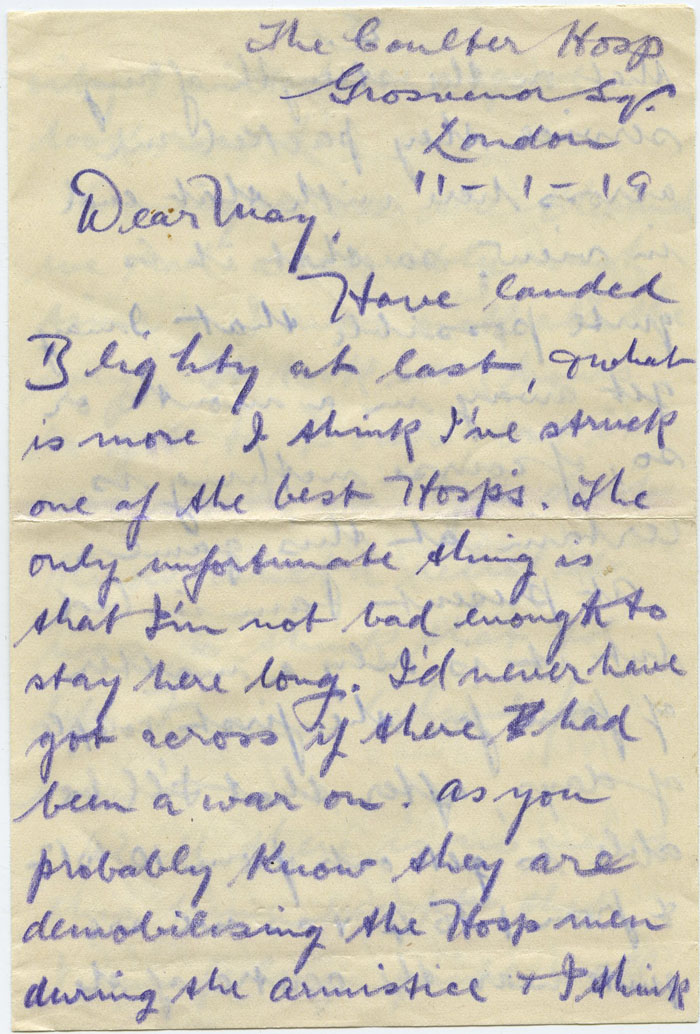 The Coulter Hosp
Grosvenor Sq.
London
11-1-19
Dear May,
Have landed
Blighty at last, & what
is more I think I've struck
one of the best Hosps. The
only unfortunate thing is
that I'm not bad enough to
stay here long. I'd never have
got across if there had
been a war on. As you
probably know they are
demobilising the Hosp men
during the armistice & I think